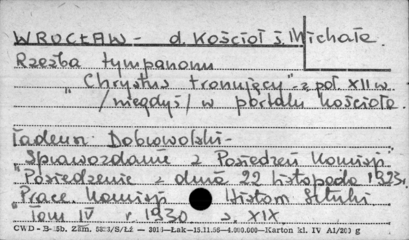 WROCŁAW - d. Kościół ś. Michała.
Rzeźba tympanonu
"Chrystus tronujący" z poł XII w.
/niegdyś/ w portalu kościoła.
Tadeusz Dobrowolski -
"Sprawozdanie z Posiedzeń Komisji"
"Posiedzenie z dnia 22 listopada 1923r.
"Prace Komisji Histom Sztuki
Tom IV r 1930 s. XIX.
CWD - B-35b. Zam. /S/Lż — Łak—15.11.56—4.000.000—Karton kl. IV A1/200 g